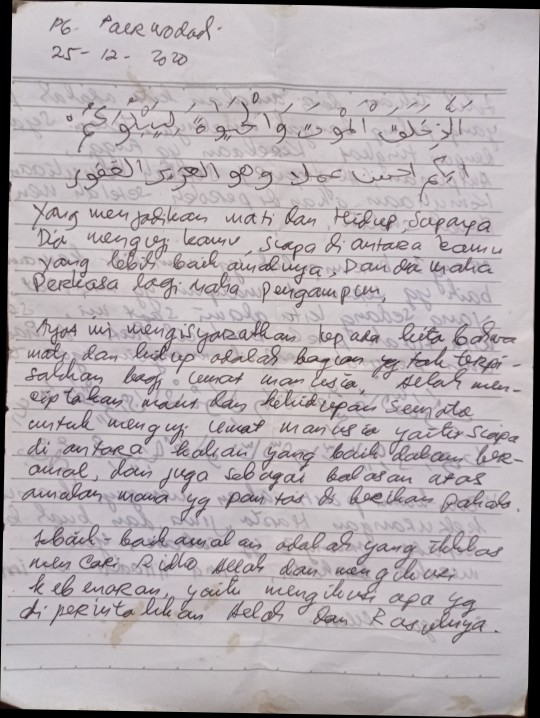 PG. Paerwodadi.
25-12-2020
الذخلق الموت والحيوة ليبلوكم
ايكم احسن عملا وهو العزيز الغفور
Yang menjadikan mati dan Hidup Supaya
Dia menguji kamu, siapa di antara kamu
yang lebih baik amalnya. Dan dia maha
Perkasa lagi Maha Pengampun,
Ayat ini mengisyaratkan kepada kita bahwa
mati dan hidup adalah bagian yg tak terpi-
sahkan bagi umat manusia, Allah men-
ciptakan mati dan kehidupan semata
untuk menguji umat manusia yaitu siapa
di antara kalian yang baik dalam ber-
amal, dan juga sebagai balasan atas
amalan mana yg pantas di berikan pahala.
Sebaik-baik amalan adalah yang ikhlas
mencari Ridho Allah dan mengikuti
kebenaran, yaitu mengikuti apa yg
diperintahkan Allah dan Rasulnya.